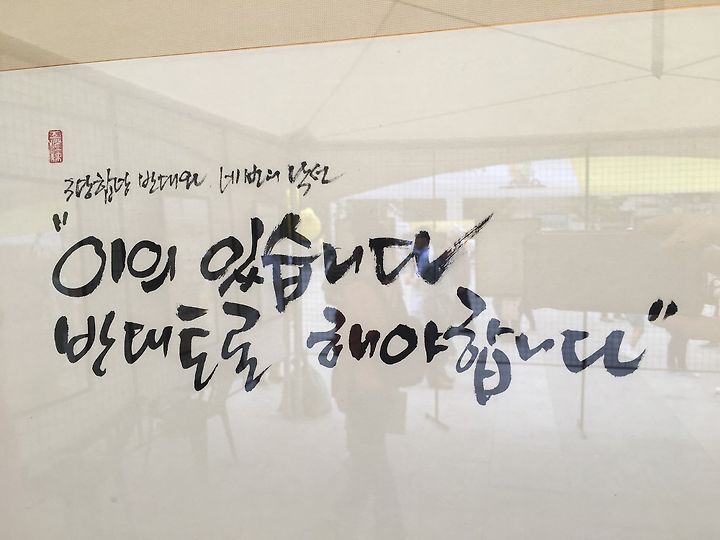 3당합당 반대와 네번의 낙선
"이의 있습니다
반대토론 해야합니다"